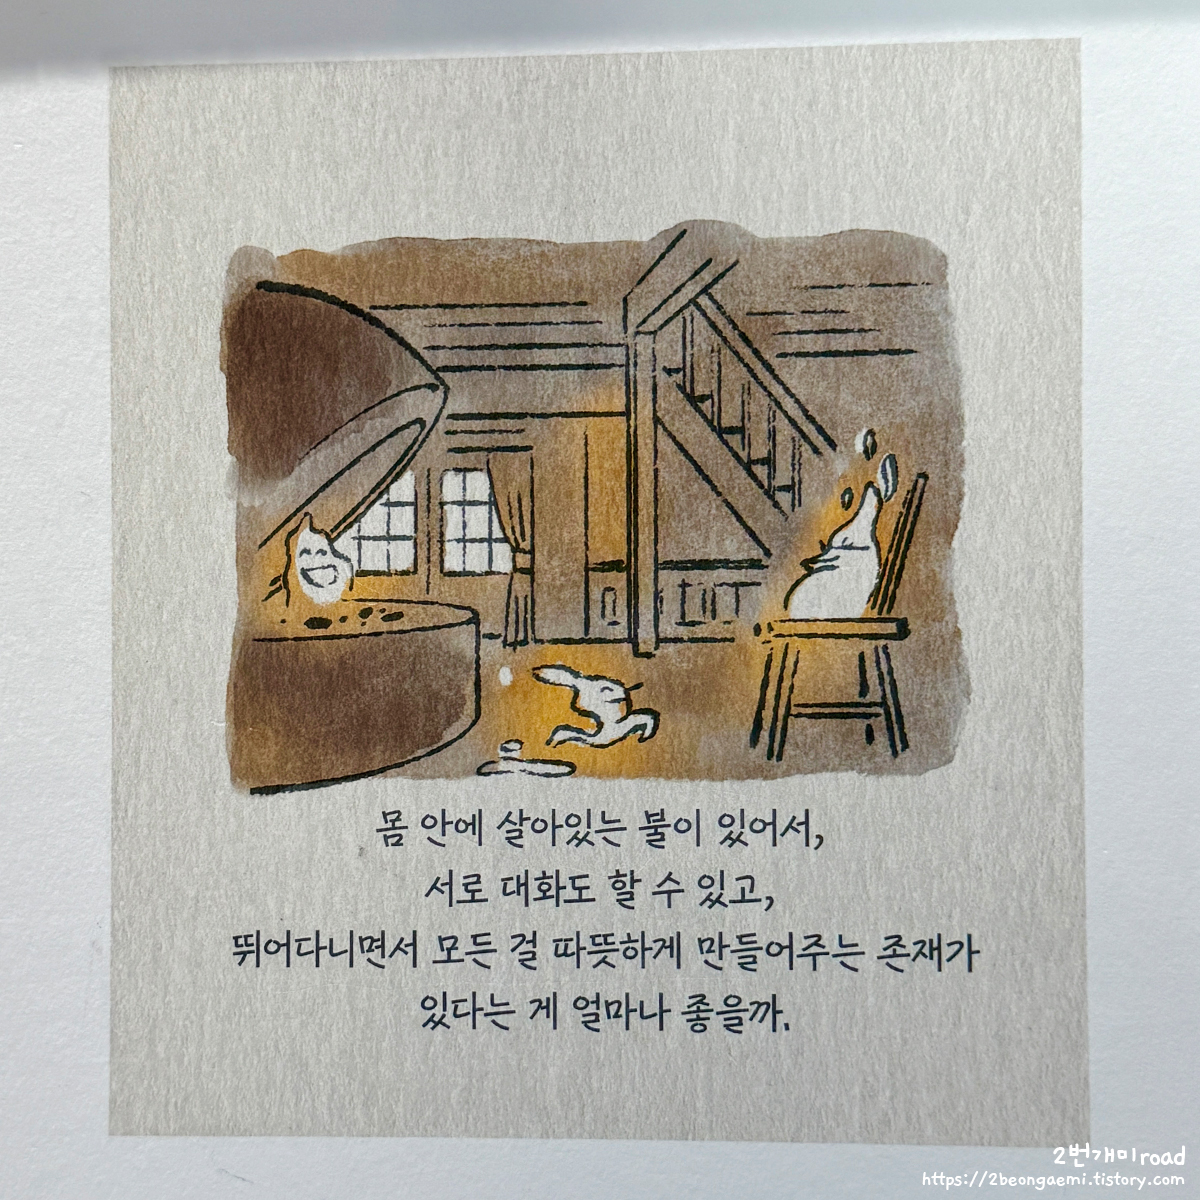 몸 안에 살아있는 불이 있어서,
서로 대화도 할 수 있고,
뛰어다니면서 모든 걸 따뜻하게 만들어주는 존재가
있다는 게 얼마나 좋을까.
2번개미road
https://2beongaemi.tistory.com